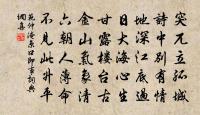 突兀立孤城
詩中別有情
地深江底過
日大海心生
甘露樓台古
金山氣象清
六朝人薄命
不見此升平
范仲淹京口即事詞典
網集